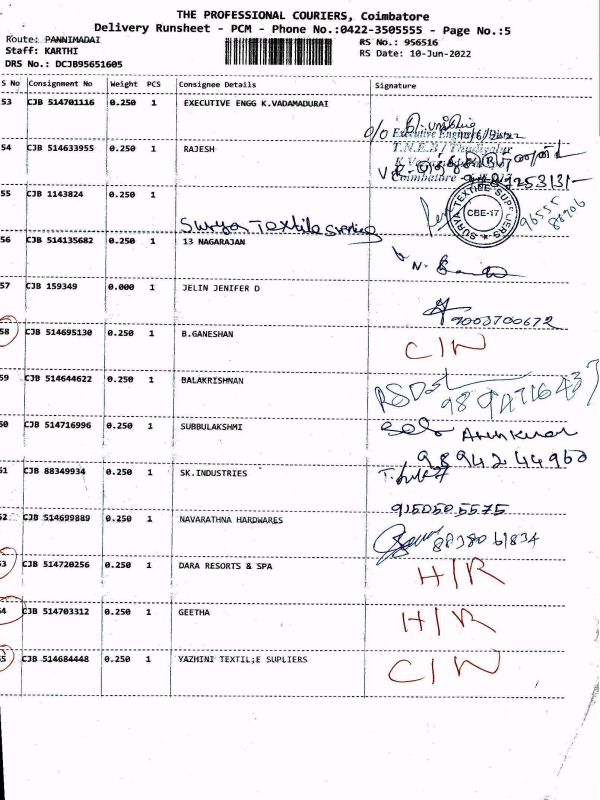 THE PROFESSIONAL COURIERS, Coimbatore
Delivery Runsheet - PCM - Phone No.:0422-3505555 - Page No.:5
Route: PANNIMADAI
Staff: KARTHI
DRS No.: DCJB95651605
RS No.: 956516
RS Date: 10-Jun-2022
S No Consignment No Weight PCS Consignee Details Signature
53 CJB 514701116 0.250 1 EXECUTIVE ENGG K.VADAMADURAI
54 CJB 514633955 0.250 1 RAJESH
55 CJB 1143824 0.250 1
Surya Textile
CBE-17
SURYA TEXTILE SUPPLIERS
56 CJB 514135682 0.250 1 13 NAGARAJAN
57 CJB 159349 0.000 1 JELIN JENIFER D
9003700672
58 CJB 514695130 0.250 1 B.GANESHAN C/N
59 CJB 514644622 0.250 1 BALAKRISHNAN
60 CJB 514716996 0.250 1 SUBBULAKSHMI
9894244960
61 CJB 88349934 0.250 1 SK.INDUSTRIES
9150505575
62 CJB 514699889 0.250 1 NAVARATHNA HARDWARES
63 CJB 514720256 0.250 1 DARA RESORTS & SPA H/R
64 CJB 514703312 0.250 1 GEETHA H/R
65 CJB 514684448 0.250 1 YAZHINI TEXTIL;E SUPLIERS C/N